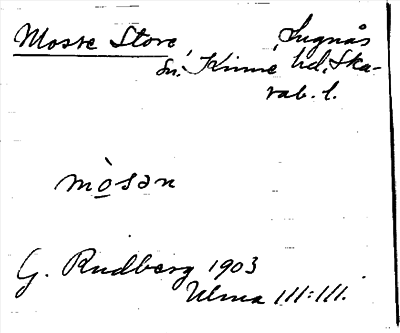 Mosse Store, Lugnås
sn. Kinne hd, Ska-
rab. l.
mòsan
G. Rudberg 1903
Ulma 111:111.